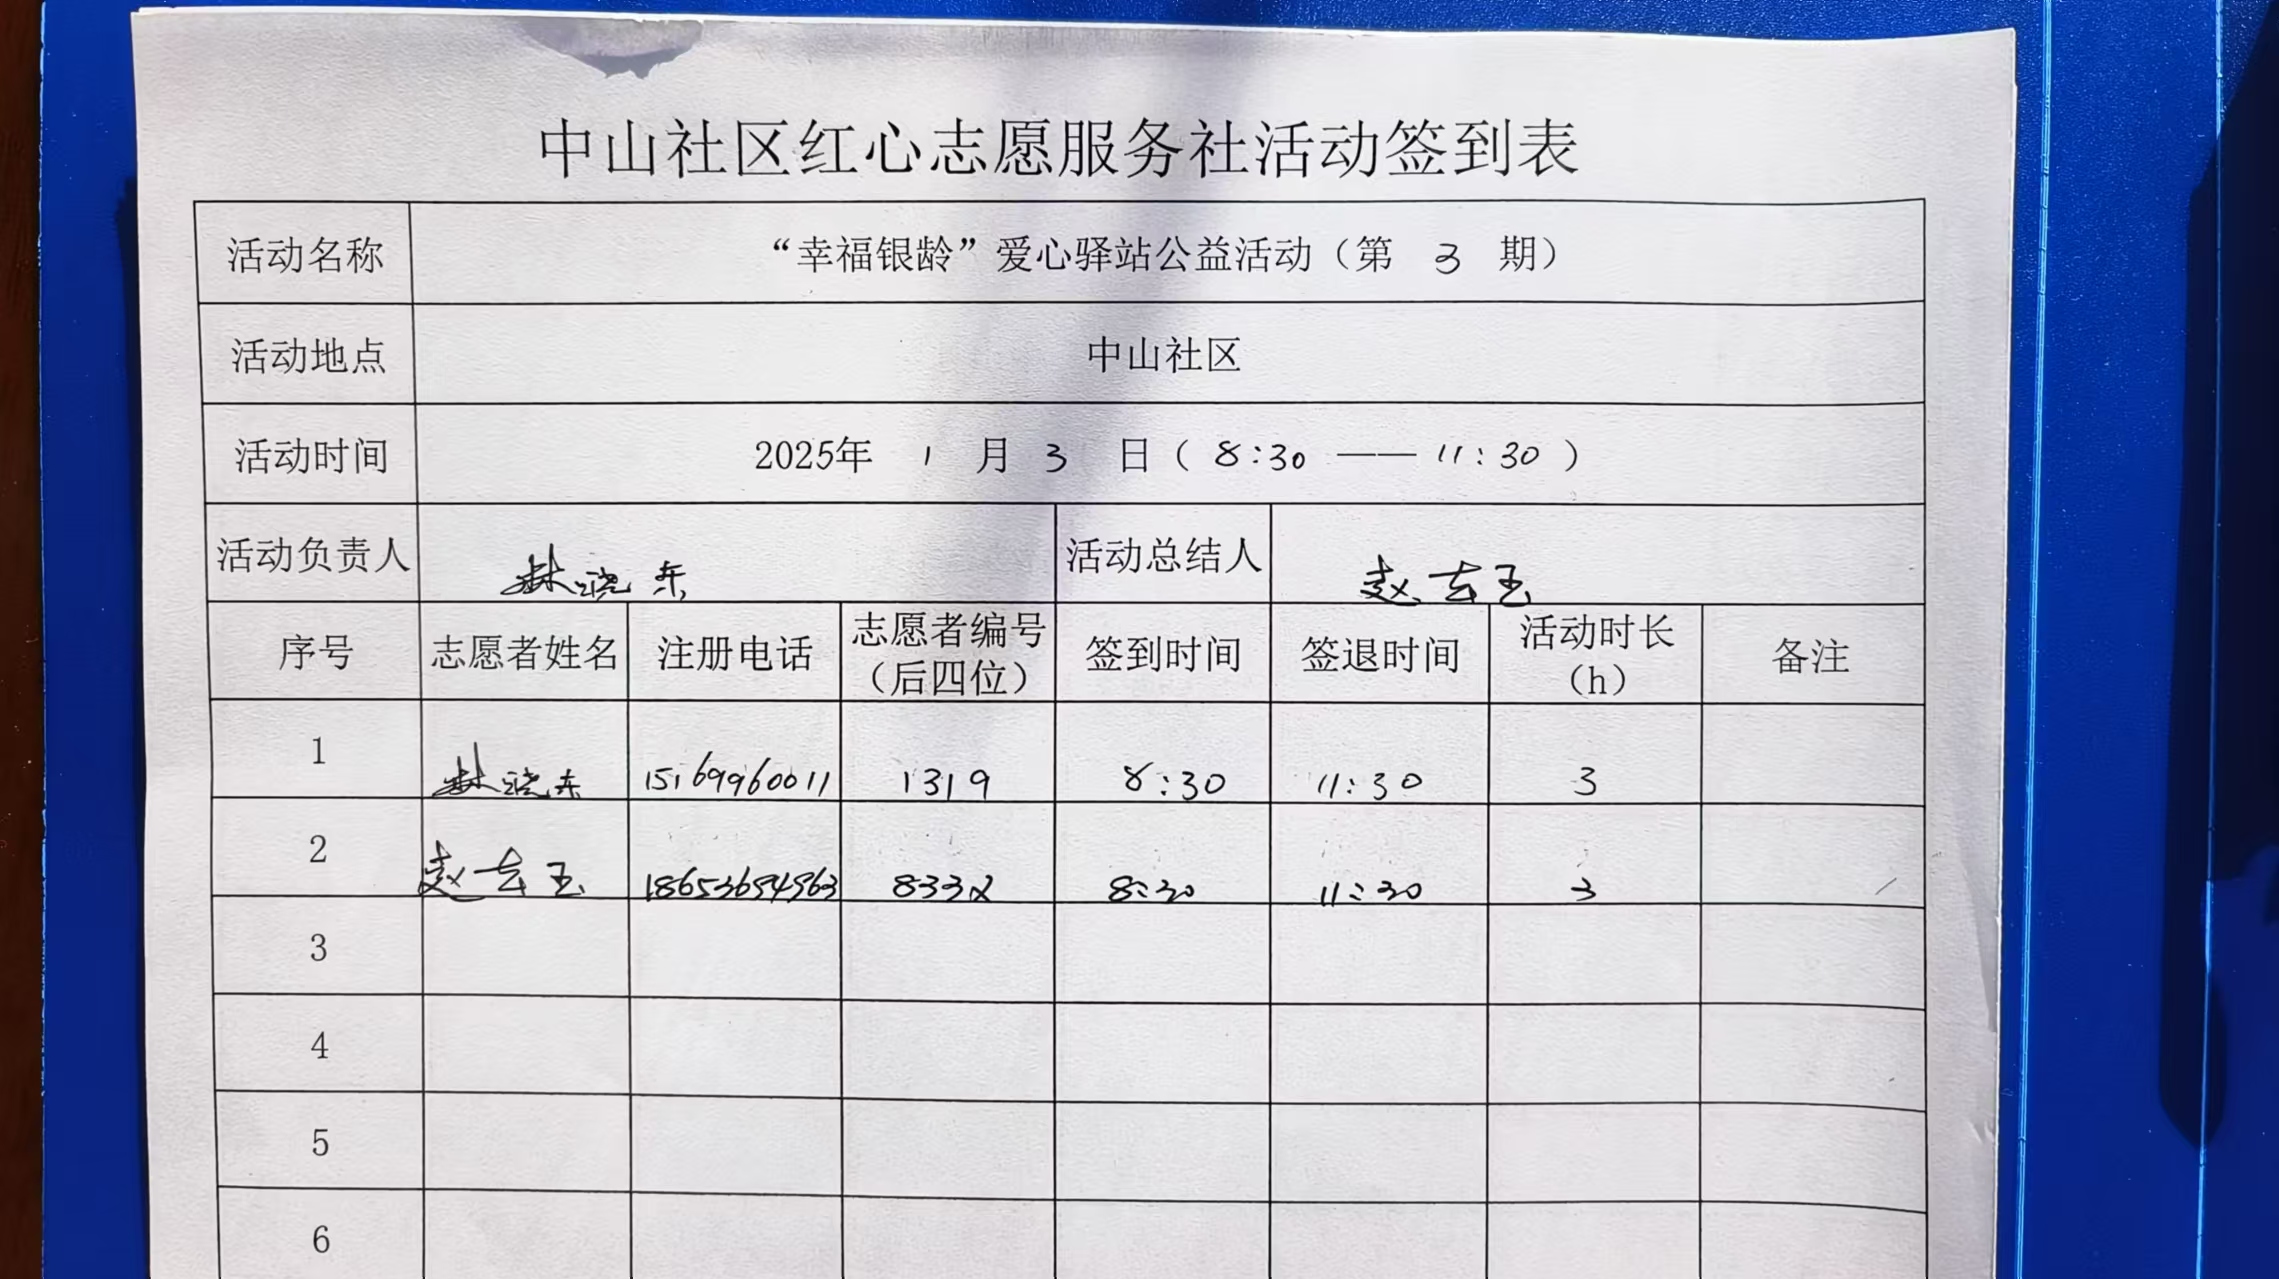 中山社区红心志愿服务社活动签到表
活动名称 “幸福银龄”爱心驿站公益活动（第 3 期）
活动地点 中山社区
活动时间 2025年 1 月 3 日（8:30 —— 11:30）
活动负责人 林晓东 活动总结人 赵云玉
序号 志愿者姓名 注册电话 志愿者编号（后四位） 签到时间 签退时间 活动时长（h） 备注
1 林晓东 15169960011 1319 8:30 11:30 3
2 赵云玉 8332 8:30 11:30 3
3
4
5
6